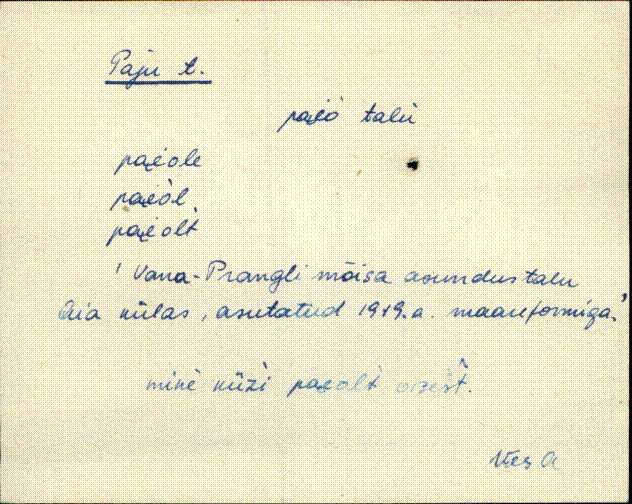 Paju t.
pai̯ò talù
pai̯ole
pai̯òl
pai̯olt
' Vana-Prangli mõisa asundustalu
külas, asutatud 1919.a. maareformiga.'
minè küzi̬ pai̯olt